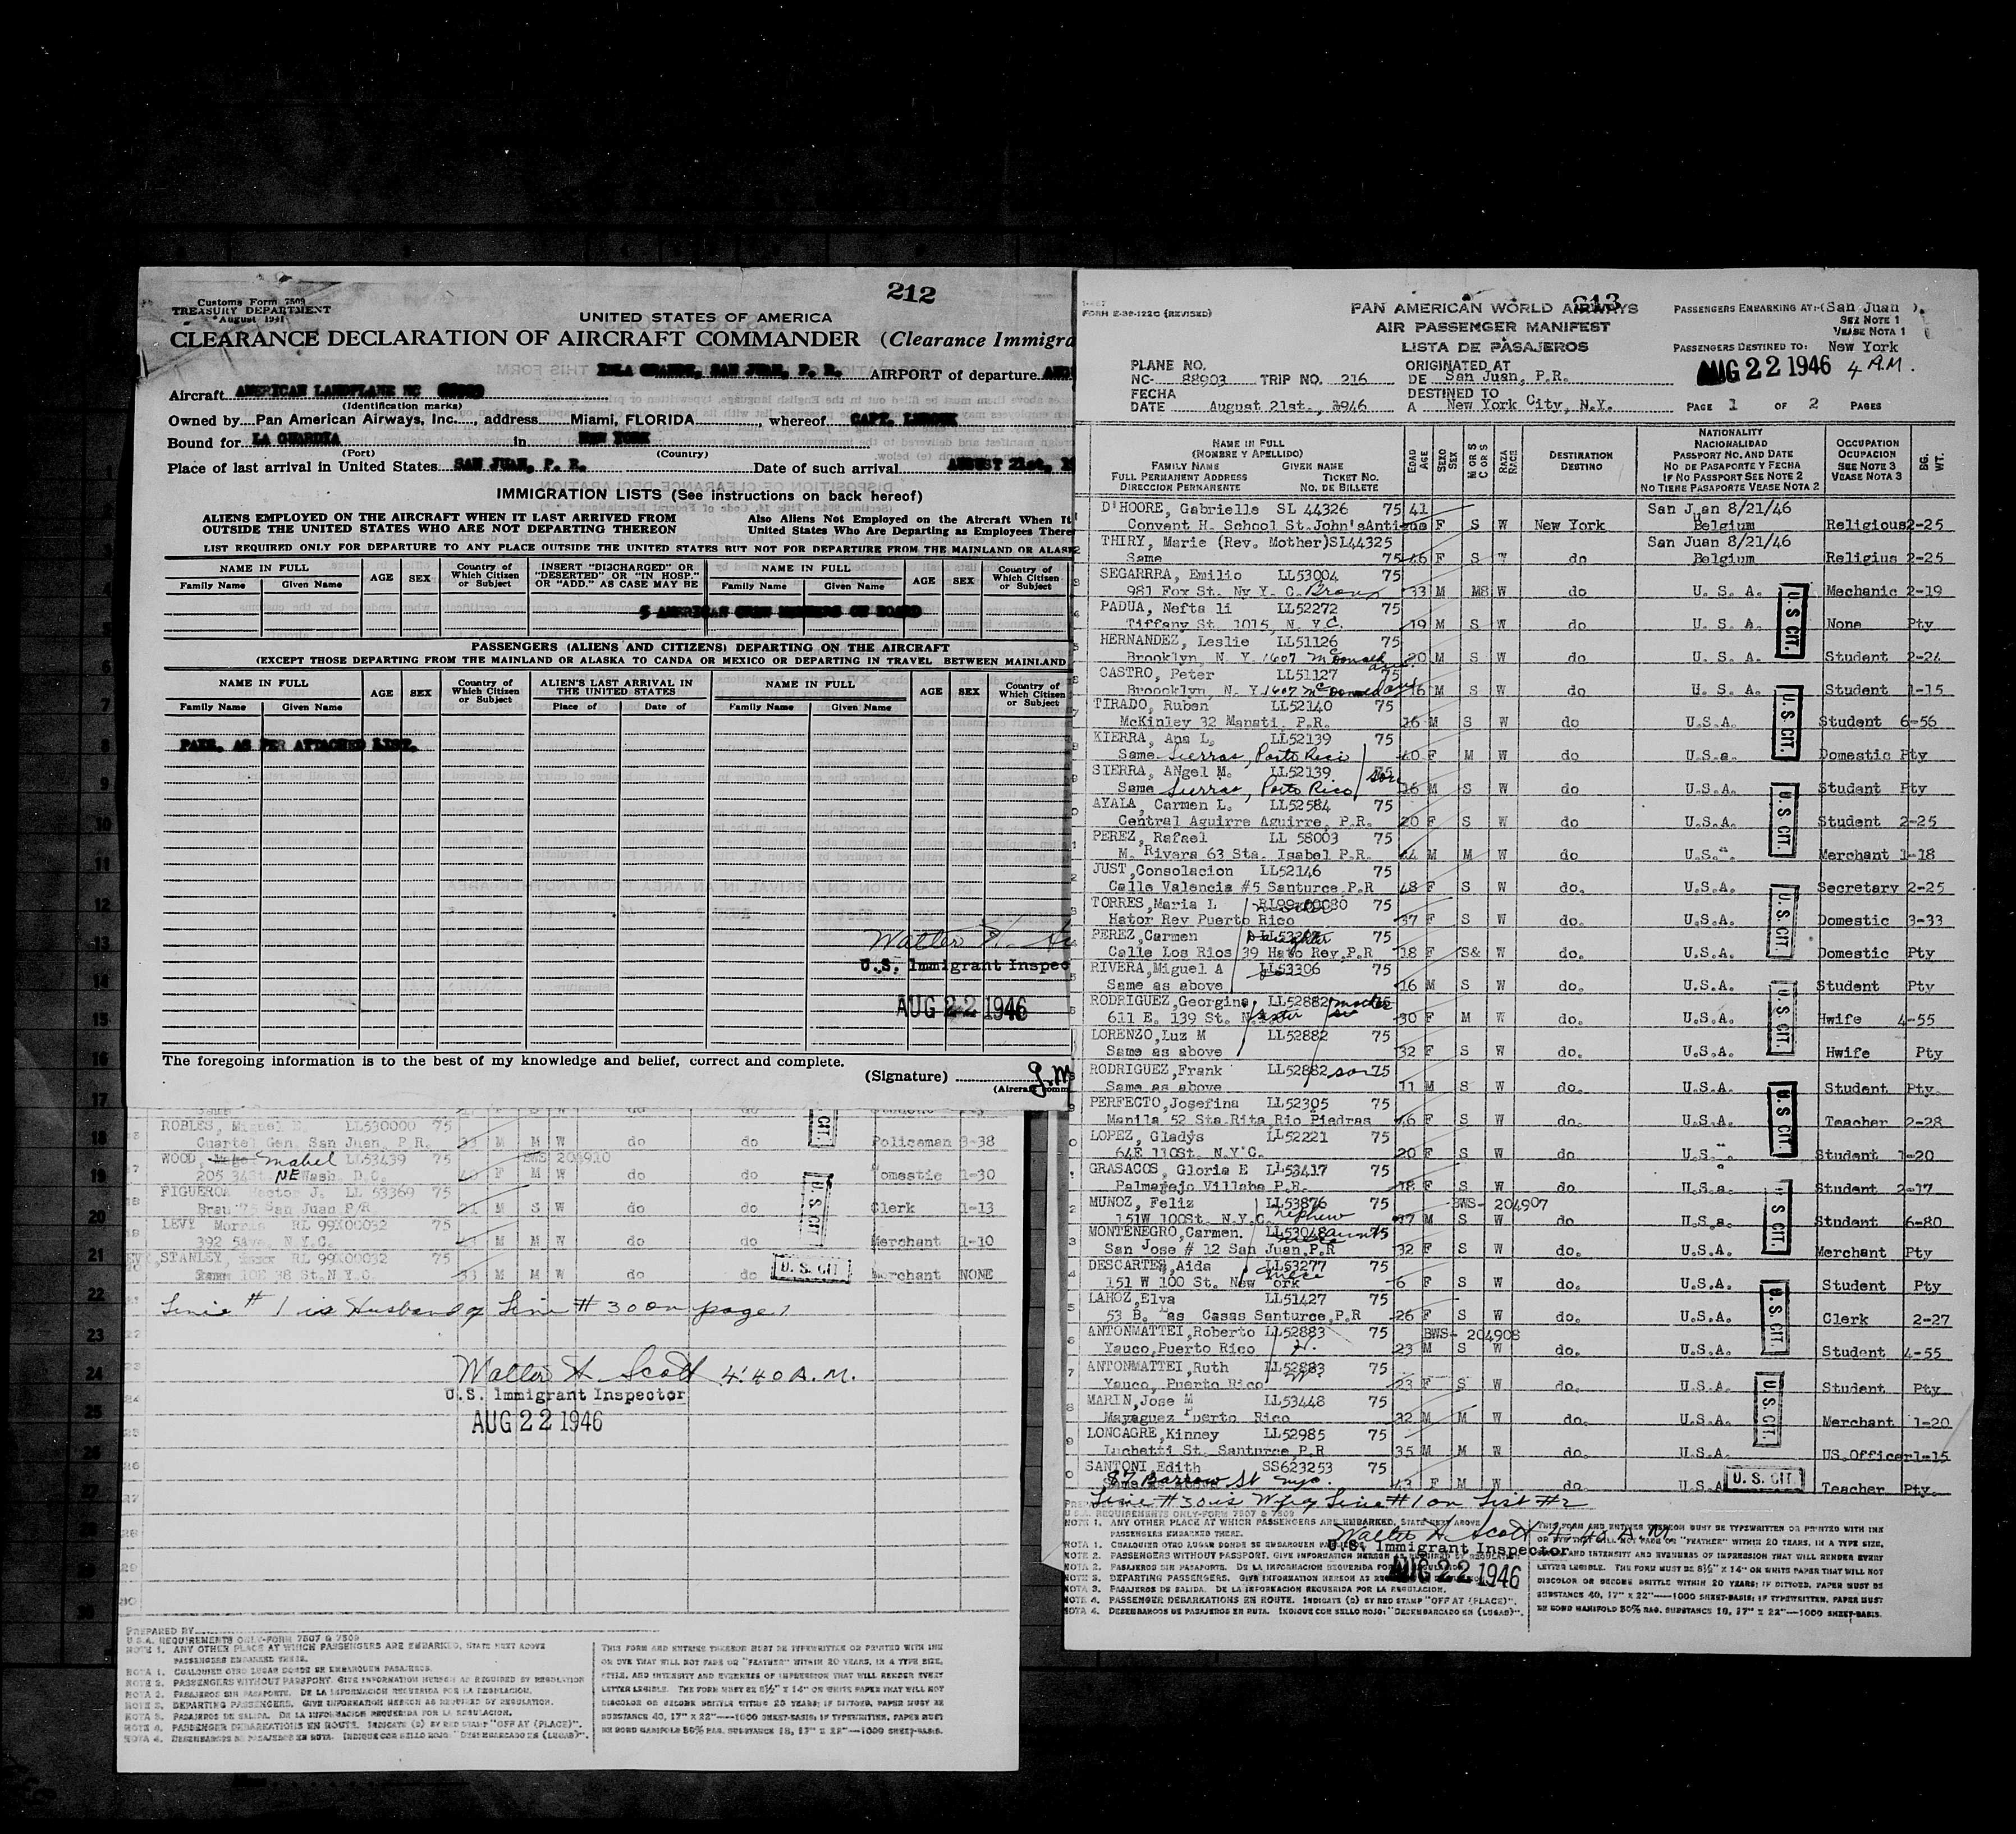 212
Customs Form 7509
TREASURY DEPARTMENT
August 1941
UNITED STATES OF AMERICA
CLEARANCE DECLARATION OF AIRCRAFT COMMANDER (Clearance Immigra
ISLA GRANDE, SAN JUAN, P. R. AIRPORT of departure
Aircraft AMERICAN LANDPLANE NC
(Identification marks)
Owned by Pan American Airways, Inc., address Miami, FLORIDA, whereof CAPT.
Bound for LA GUARDIA in NEW YORK
(Port) (Country)
Place of last arrival in United States SAN JUAN, P. R. Date of such arrival AUGUST 21st, 19
IMMIGRATION LISTS (See instructions on back hereof)
ALIENS EMPLOYED ON THE AIRCRAFT WHEN IT LAST ARRIVED FROM
OUTSIDE THE UNITED STATES WHO ARE NOT DEPARTING THEREON
Also Aliens Not Employed on the Aircraft When It
United States Who Are Departing as Employees There
LIST REQUIRED ONLY FOR DEPARTURE TO ANY PLACE OUTSIDE THE UNITED STATES BUT NOT FOR DEPARTURE FROM THE MAINLAND OR ALAS
NAME IN FULL AGE SEX Country of Which Citizen or Subject INSERT "DISCHARGED" OR "DESERTED" OR "IN HOSP." OR "ADD." AS CASE MAY BE NAME IN FULL AGE SEX Country of Which Citizen or Subject
Family Name Given Name Family Name Given Name
5 AMERICAN CREW MEMBERS ON BOARD
PASSENGERS (ALIENS AND CITIZENS) DEPARTING ON THE AIRCRAFT
(EXCEPT THOSE DEPARTING FROM THE MAINLAND OR ALASKA TO CANDA OR MEXICO OR DEPARTING IN TRAVEL BETWEEN MAINLAND
NAME IN FULL AGE SEX Country of Which Citizen or Subject ALIEN'S LAST ARRIVAL IN THE UNITED STATES NAME IN FULL AGE SEX Country of Which Citizen or Subject
Family Name Given Name Place of Date of Family Name Given Name
PAX. AS PER ATTACHED LIST.
Walter H.
U.S. Immigrant Inspec
AUG 22 1946
The foregoing information is to the best of my knowledge and belief, correct and complete.
(Signature) J.M
(Aircraft comm
ROBLES, Miguel LL530000 75
Cuartel Gen. San Juan, P. R. M M W do do Policeman 3-38
WOOD, Mabel LL53439 75 BWS 204910
205 34St. NE Wash. D.C. F M W do do Domestic 1-30
FIGUEROA Hector J. LL 53369 75
Brau 75 San Juan P/R M S W do do Clerk 1-13
LEVY Morris RL 99X00032 75
392 5Ave. N.Y.C. M M W do do Merchant 1-10
STANLEY, RL 99X00032 75
10E 38 St.N.Y.C. 33 M M W do do U. S. CIT. Merchant NONE
Line # 1 is Husband of Line # 30 on page 1
Walter H. Scott 4:40 A.M.
U.S. Immigrant Inspector
AUG 22 1946
PREPARED BY
U.S.A. REQUIREMENTS ONLY-FORM 7507 & 7509
NOTE 1. ANY OTHER PLACE AT WHICH PASSENGERS ARE EMBARKED, STATE NEXT ABOVE
PASSENGERS EMBARKED THERE.
NOTA 1. CUALQUIER OTRO LUGAR DONDE SE EMBARQUEN PASAJEROS.
NOTE 2. PASSENGERS WITHOUT PASSPORT. GIVE INFORMATION HEREON AS REQUIRED BY REGULATION
NOTA 2. PASAJEROS SIN PASAPORTE. DE LA INFORMACION REQUERIDA POR LA REGULACION.
NOTE 3. DEPARTING PASSENGERS. GIVE INFORMATION HEREON AS REQUIRED BY REGULATION.
NOTA 3. PASAJEROS DE SALIDA. DE LA INFORMACION REQUERIDA POR LA REGULACION.
NOTE 4. PASSENGER DEBARKATIONS EN ROUTE. INDICATE (O) BY RED STAMP "OFF AT (PLACE)".
NOTA 4. DESEMBARCOS DE PASAJEROS EN RUTA. INDIQUE CON SELLO ROJO: "DESEMBARCADO EN (LUGAR)".
THIS FORM AND ENTRIES THEREON MUST BE TYPEWRITTEN OR PRINTED WITH INK
OR DYE THAT WILL NOT FADE OR "FEATHER" WITHIN 20 YEARS, IN A TYPE SIZE,
STYLE, AND INTENSITY AND EVENNESS OF IMPRESSION THAT WILL RENDER EVERY
LETTER LEGIBLE. THE FORM MUST BE 8½" X 14" ON WHITE PAPER THAT WILL NOT
DISCOLOR OR BECOME BRITTLE WITHIN 20 YEARS; IF TYPEWRITTEN, PAPER MUST
BE BOND MANIFOLD 50% RAG. SUBSTANCE 18, 17" X 22"—1000 SHEET-BASIS.
213
FORM E-39-122C (REVISED)
PAN AMERICAN WORLD AIRWAYS
AIR PASSENGER MANIFEST
LISTA DE PASAJEROS
PASSENGERS EMBARKING AT: (San Juan ).
SEE NOTE 1
VEASE NOTA 1
PASSENGERS DESTINED TO: New York
AUG 22 1946 4 A.M.
PLANE NO.
NC- 88903 TRIP NO. 216
ORIGINATED AT
DE San Juan, P.R.
FECHA
DATE August 21st., 1946
DESTINED TO
A New York City, N.Y.
PAGE 1 OF 2 PAGES
NAME IN FULL
(NOMBRE Y APELLIDO)
FAMILY NAME GIVEN NAME
FULL PERMANENT ADDRESS TICKET NO.
DIRECCION PERMANENTE NO. DE BILLETE
EDAD AGE SEXO SEX M OR S C OR S RAZA RACE DESTINATION DESTINO
NATIONALITY
NACIONALIDAD
PASSPORT NO. AND DATE
NO DE PASAPORTE Y FECHA
IF NO PASSPORT SEE NOTE 2
NO TIENE PASAPORTE VEASE NOTA 2
OCCUPATION
OCUPACION
SEE NOTE 3
VEASE NOTA 3
BG. WT.
D'HOORE, Gabrielle SL 44326 75 41 San Juan 8/21/46
Convent H. School St.John'sAntigua F S W New York Belgium Religious 2-25
THIRY, Marie (Rev. Mother)SL44325 San Juan 8/21/46
Same 75 46 F S W do Belgium Religius 2-25
SEGARRRA, Emilio LL53004 75
981 Fox St. Ny Y. C. Bronx 33 M MS W do U. S. A. Mechanic 2-19
PADUA, Nefta li LL52272 75
Tiffany St. 1015, N. Y.C. 19 M S W do U. S. A. None Pty
HERNANDEZ, Leslie LL51126 75
Brooklyn, N. Y. 1607 McDonald ave. 20 M S W do U. S. A. Student 2-24
CASTRO, Peter LL51127 75
Broooklyn, N. Y. 1607 McDonald ave 16 M S W do U. S. A. Student 1-15
TIRADO, Ruben LL52140 75
McKinley 32 Manati. P.R. 16 M S W do U.S.A. Student 6-56
KIERRA, Ana L. LL52139 75
Same Sierras, Porto Rico 40 F M W do U.S.a. Domestic Pty
SIERRA, ANgel M. LL52139 75 son
Same Sierras, Porto Rico 16 M S W do U.S.A. Student Pty
AYALA, Carmen L. LL52584 75
Central Aguirre Aguirre, P.R. 20 F S W do U.S.A. Student 2-25
PEREZ, Rafael LL 58003 75
M. Rivera 63 Sta. Isabel P.R. 44 M M W do U.S.". Merchant 1-18
JUST,Consolacion LL52146 75
Calle Valencia #5 Santurce,P.R 48 F S W do. U.S.A. Secretary 2-25
TORRES,Maria L RL99x00030 75
Hator Rey Puerto Rico 37 F S W do. U.S.A. Domestic 3-33
PEREZ,Carmen daughter 75
Calle Los Rios 39 Hato Rey,P.R 18 F S& W do. U.S.A. Domestic Pty
RIVERA,Miguel A LL53306 75
Same as above 16 M S W do. U.S.A. Student Pty
RODRIGUEZ,Georgina LL52882 mother
611 E. 139 St. N. sister 30 F M W do. U.S.A. Hwife 4-55
LORENZO,Luz M LL52882 75
Same as above 32 F S W do. U.S.A. Hwife Pty
RODRIGUEZ,Frank LL52882 son 75
Same as above 11 M S W do. U.S.A. Student Pty.
PERFECTO,Josefina LL52305 75
Manila 52 Sta.Rita,Rio Piedras 46 F S W do. U.S.A. Teacher 2-28
LOPEZ, Gladys LL52221 75
64E 110St. N.Y'C. 20 F S W do. U.S. Student 1-20
GRASACOS, Gloria E LL53417 75
Palmarejo Villaba P.R. 18 F S W do. U.S.a. Student 2-17
MUNOZ, Feliz LL53876 75 BWS- 204907
151W 100St. N.Y.C. nephew 37 M S W do. U.S.a. Student 6-80
MONTENEGRO,Carmen. LL53048 aunt 75
San Jose # 12 San Juan,P.R 32 F S W do. U.S.A. Merchant Pty
DESCARTES,Aida LL53277 75
151 W 100 St. New York niece 6 F S W do. U.S.A. Student Pty
LAHOZ,Elva LL51427 75
53 B. as Casas Santurce,P.R 26 F S W do. U.S.A. Clerk 2-27
ANTONMATTEI,Roberto LL52883 75 BWS- 204908
Yauco,Puerto Rico H. 23 M S W do. U.S.A. Student 4-55
ANTONMATTEI,Ruth LL52883 75
Yauco, Puerto Rico W 23 F S W do. U.S.A. Student Pty
MARIN,Jose M LL53448 75
Mayaguez Puerto Rico 32 M M W do. U.S.A. Merchant 1-20
LONCAGRE,Kinney LL52985 75
Luchetti St. Santurce,P.R 35 M M W do. U.S.A. US.Officer 1-15
SANTONI,Edith SS623253 75
87 Barrow St nyc. 43 F M W do. U.S.A U. S. CIT. Teacher Pty.
U. S CIT.
U. S CIT.
U. S CIT.
U. S CIT.
U. S CIT.
U. S CIT.
U. S CIT.
U. S CIT.
U. S CIT.
Line #30 is Wf of Line #1 on List #2
U S A. REQUIREMENTS ONLY-FORM 7507 & 7509
NOTE 1. ANY OTHER PLACE AT WHICH PASSENGERS ARE EMBARKED, STATE NEXT ABOVE
PASSENGERS EMBARKED THERE.
Walter H. Scott 4:40 A.M.
U.S. Immigrant Inspector
AUG 22 1946
NOTA 1. CUALQUIER OTRO LUGAR DONDE SE EMBARQUEN
NOTE 2. PASSENGERS WITHOUT PASSPORT. GIVE INFORMATION HEREON AS REQUIRED BY REGULATION
NOTA 2. PASAJEROS SIN PASAPORTE. DE LA INFORMACION REQUERIDA POR
NOTE 3. DEPARTING PASSENGERS. GIVE INFORMATION HEREON AS
NOTA 3. PASAJEROS DE SALIDA. DE LA INFORMACION REQUERIDA POR LA REGULACION.
NOTE 4. PASSENGER DEBARKATIONS EN ROUTE. INDICATE (O) BY RED STAMP "OFF AT (PLACE)".
NOTA 4. DESEMBARCOS DE PASAJEROS EN RUTA. INDIQUE CON SELLO ROJO: "DESEMBARCADO EN (LUGAR)".
THIS FORM AND ENTRIES THEREON MUST BE TYPEWRITTEN OR PRINTED WITH INK
OR DYE THAT WILL NOT FADE OR "FEATHER" WITHIN 20 YEARS, IN A TYPE SIZE,
AND INTENSITY AND EVENNESS OF IMPRESSION THAT WILL RENDER EVERY
LETTER LEGIBLE. THE FORM MUST BE 8½" X 14" ON WHITE PAPER THAT WILL NOT
DISCOLOR OR BECOME BRITTLE WITHIN 20 YEARS; IF DITTOED, PAPER MUST BE
SUBSTANCE 40, 17" X 22"—1000 SHEET-BASIS; IF TYPEWRITTEN, PAPER MUST
BE BOND MANIFOLD 50% RAG. SUBSTANCE 18, 17" X 22"—1000 SHEET-BASIS.